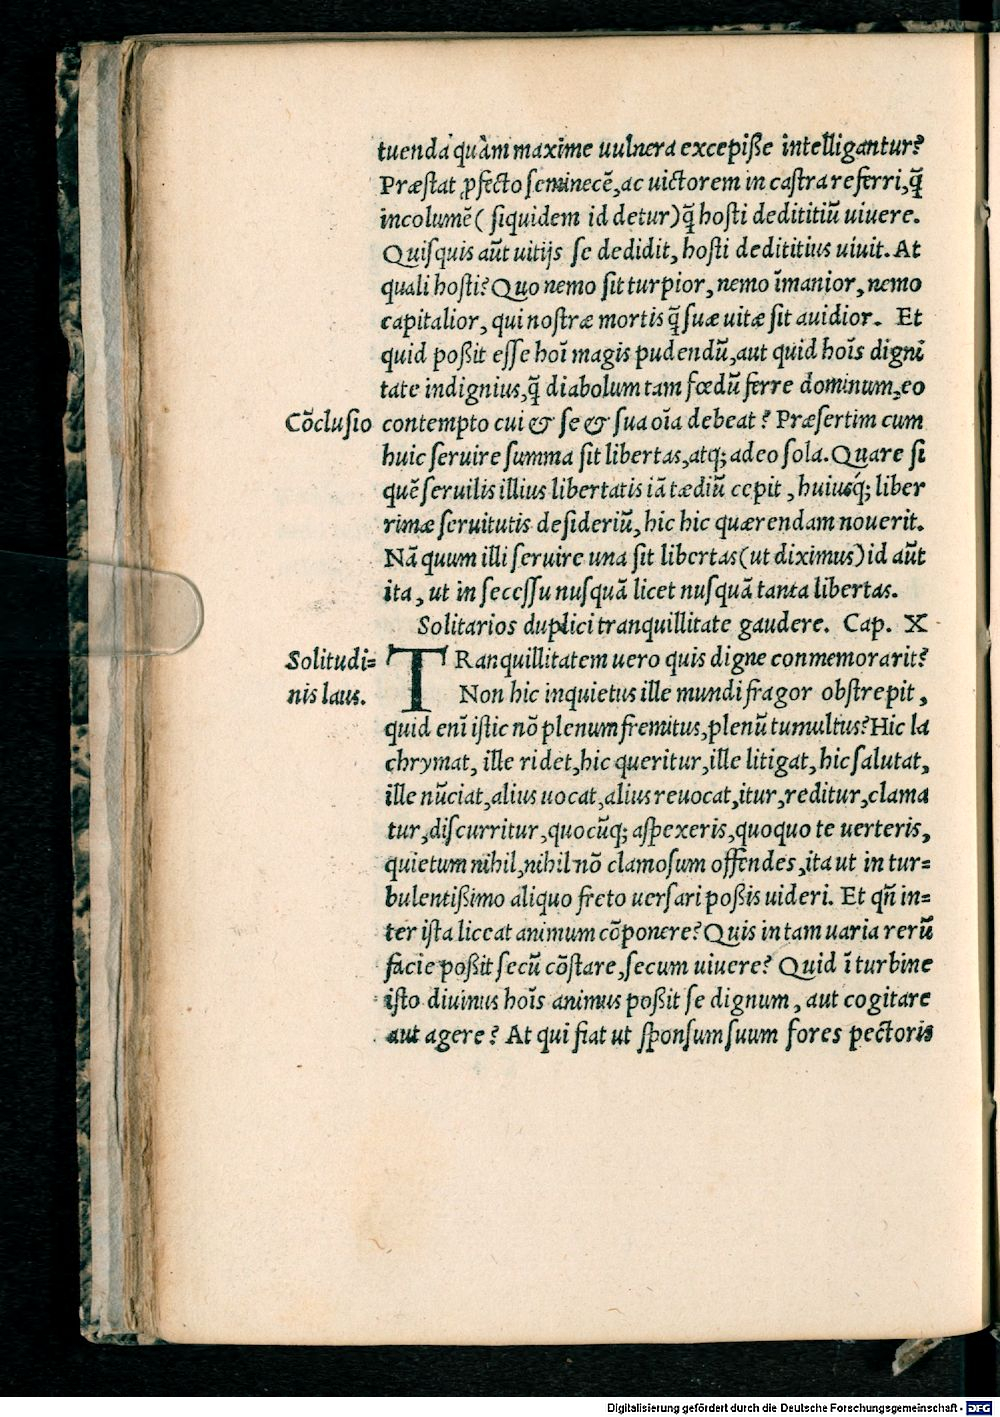 tuenda quàm maxime uulnera excepiße intelligantur?
Præstat ꝓfecto seminecẽ, ac uictorem in castra referri, q̃
incolumẽ ( siquidem id detur) q̃ hosti dedititiũ uiuere.
Quisquis aũt uitijs se dedidit, hosti dedititius uiuit. At
quali hosti? Quo nemo sit turpior, nemo ĩmanior, nemo
capitalior, qui nostræ mortis q̃ suæ uitæ sit auidior. Et
quid poßit esse hoĩ magis pudendũ, aut quid hoĩs digni
tate indignius, q̃ diabolum tam fœdũ ferre dominum, eo
Cõclusio contempto cui & se & sua oĩa debeat? Præsertim cum
huic seruire summa sit libertas, atq; adeo sola. Quare si
quẽ seruilis illius libertatis iã tædiũ cepit, huiusq́; liber
rimæ seruitutis desideriũ, hic hic quærendam nouerit.
Nã quum illi seruire una sit libertas (ut diximus) id aũt
ita, ut in secessu nusquã licet nusquã tanta libertas.
Solitarios duplici tranquillitate gaudere. Cap. X
Solitudi=
nis laus.
TRanquillitatem uero quis digne conmemorarit?
Non hic inquietus ille mundi fragor obstrepit,
quid enĩ istic nõ plenum fremitus, plenũ tumultus? Hic la
chrymat, ille ridet, hic queritur, ille litigat, hic salutat,
ille nũciat, alius uocat, alius reuocat, itur, reditur, clama
tur, discurritur, quocũq; aspexeris, quoquo te uerteris,
quietum nihil, nihil nõ clamosum offendes, ita ut in tur=
bulentißimo aliquo freto uersari poßis uideri. Et qñ in=
ter ista liceat animum cõponere? Quis in tam uaria rerũ
facie poßit secũ cõstare, secum uiuere? Quid ĩ turbine
isto diuinus hoĩs animus poßit se dignum, aut cogitare
aut agere? At qui fiat ut sponsum suum fores pectoris
Digitalisierung gefördert durch die Deutsche Forschungsgemeinschaft - DFG